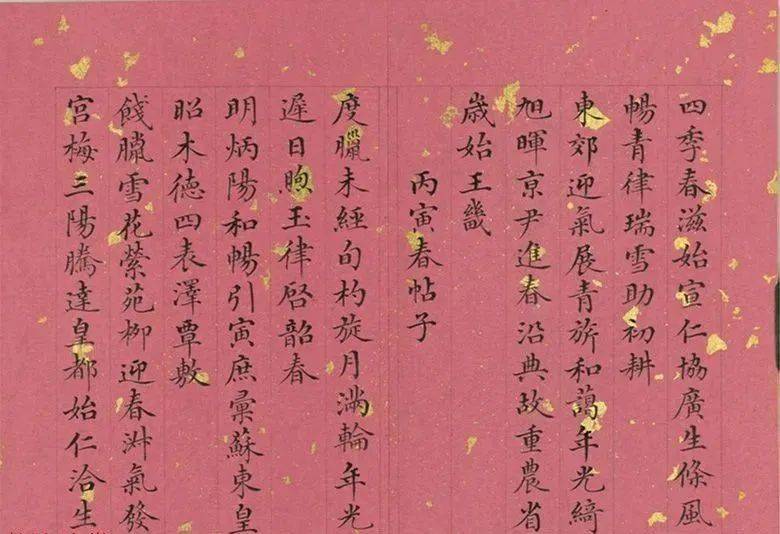 四季春滋始宣仁協廣生條風
暢青律瑞雪助初耕
東郊迎氣展青旂和藹年光綺
旭暉京尹進春沿典故重農省
歲始王畿
丙寅春帖子
度臘未經旬杓旋月滿輪年光
遲日煦玉律啓韶春
明炳陽和暢引寅庶彙蘇東皇
昭木德四表澤覃敷
餞臘雪花縈苑柳迎春淑氣發
宮梅三陽騰達皇都始仁洽生